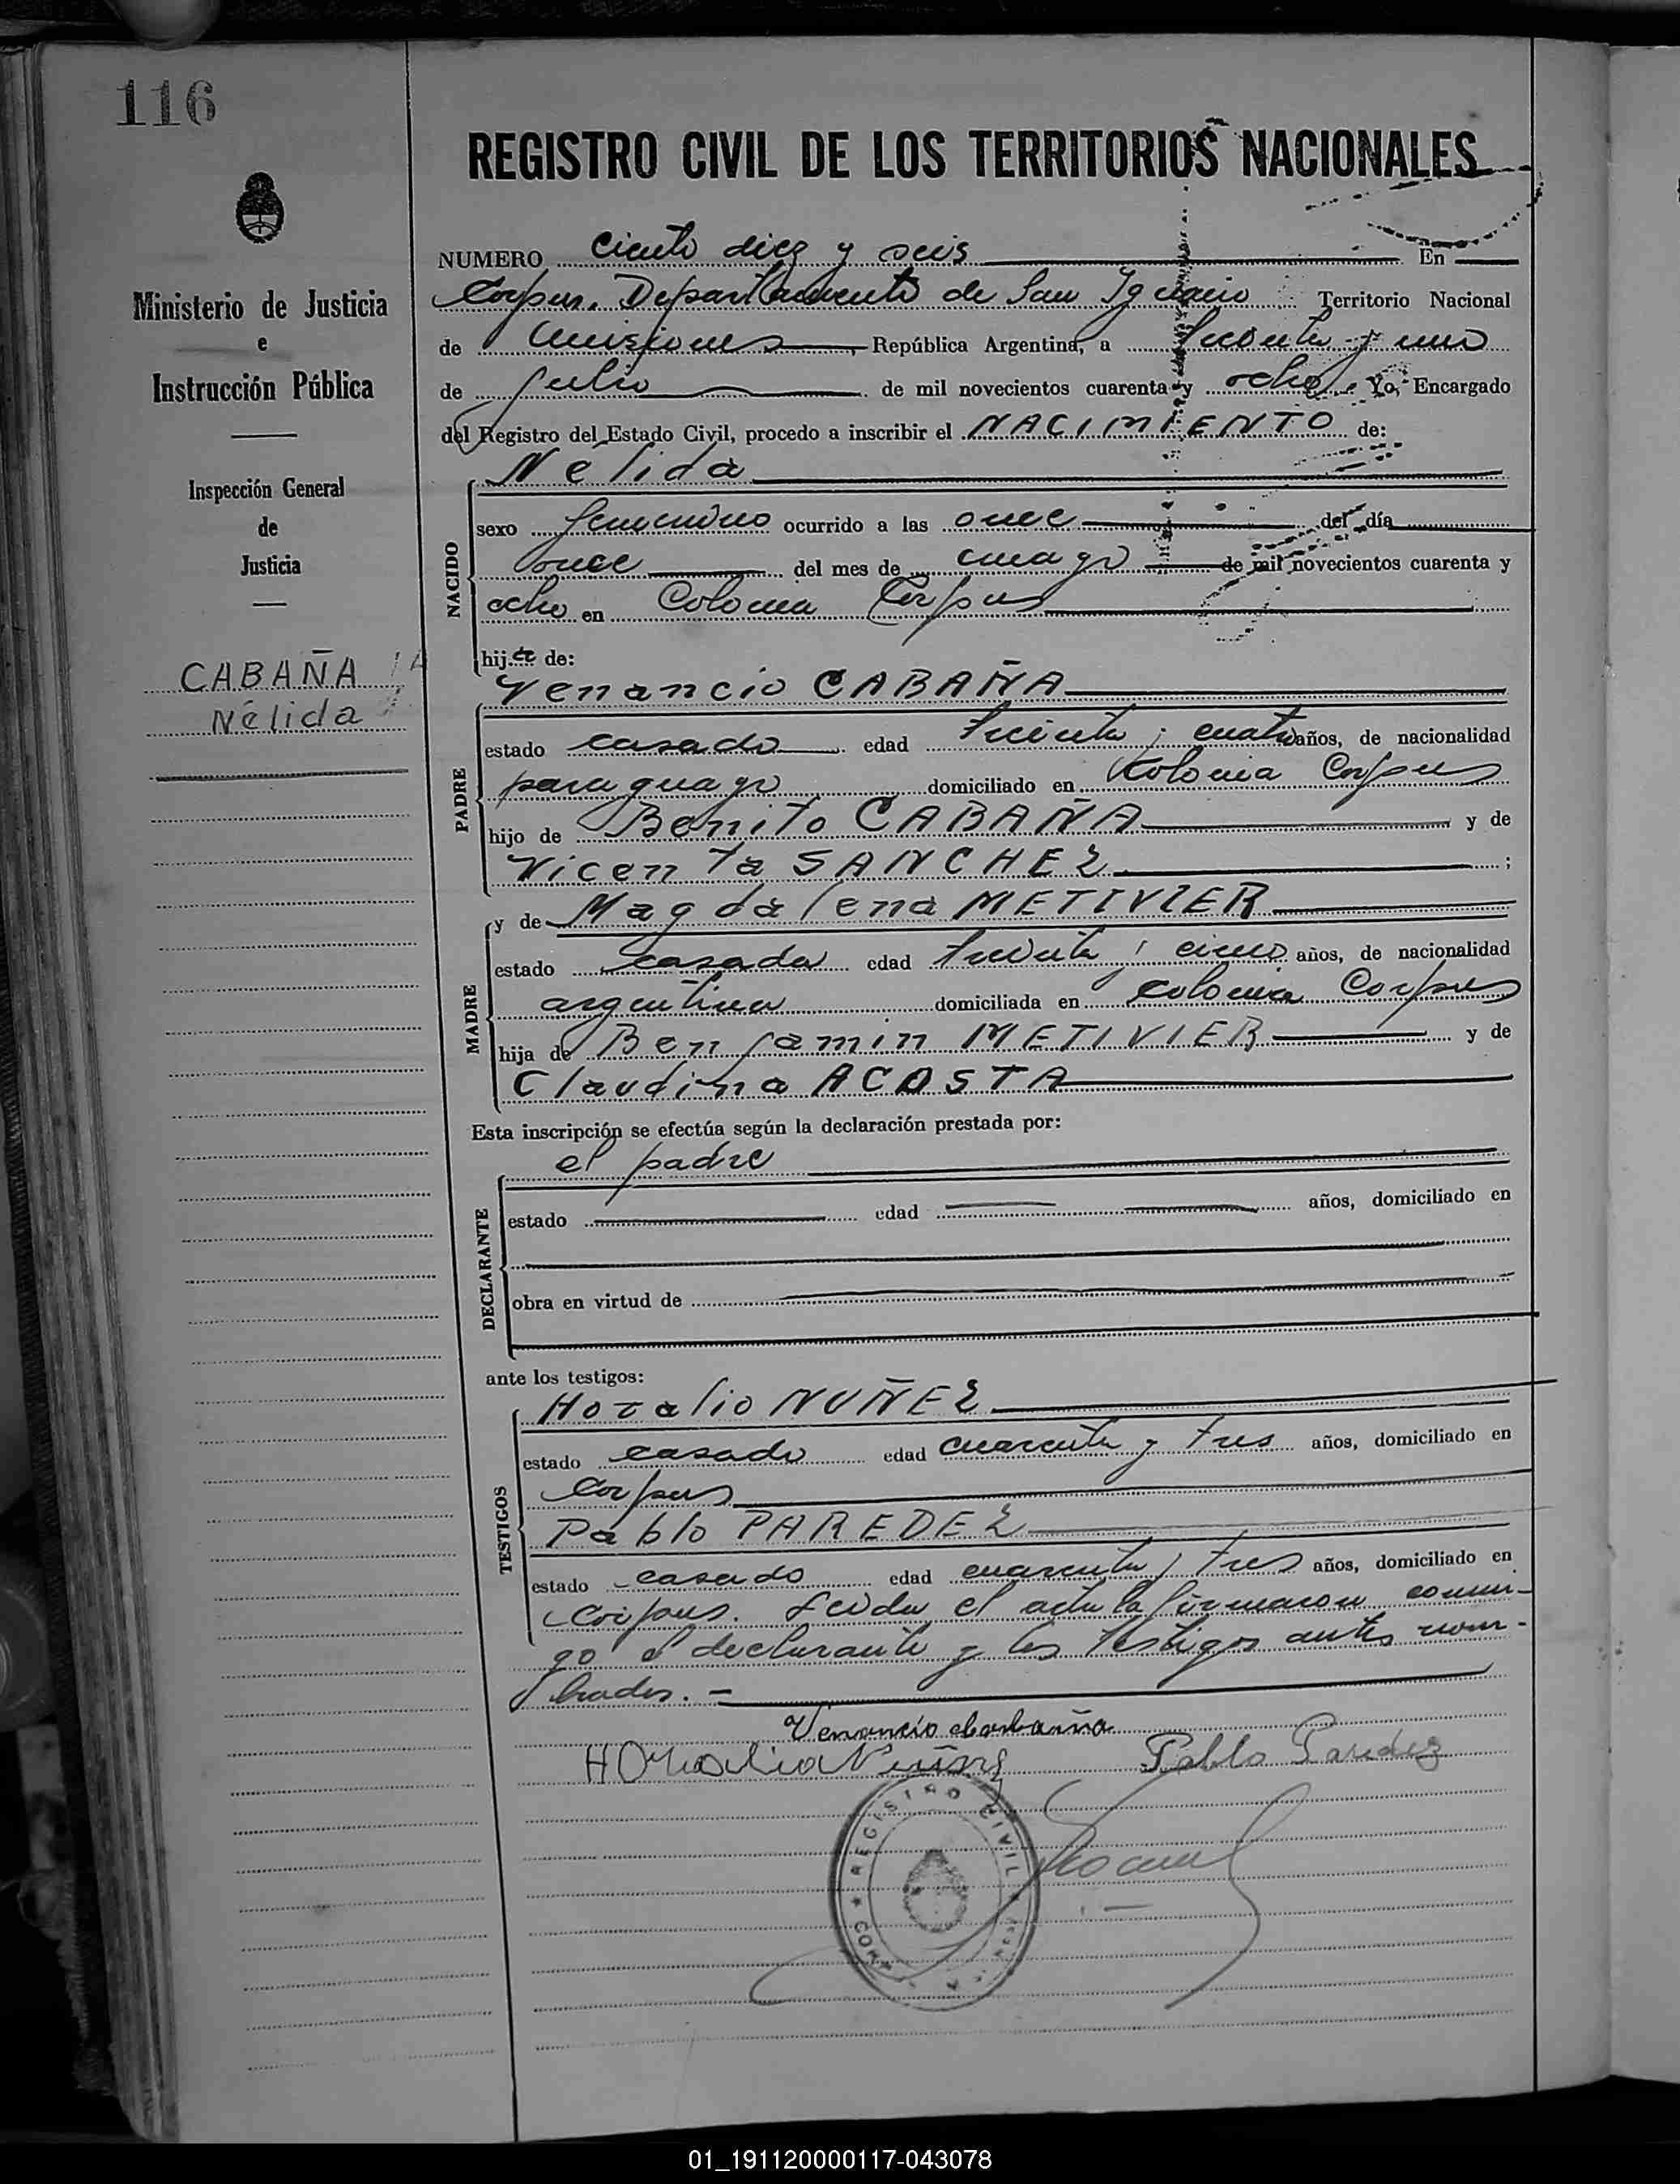 116
REGISTRO CIVIL DE LOS TERRITORIOS NACIONALES
Ministerio de Justicia
e
Instrucción Pública
Inspección General
de
Justicia
CABAÑA
Nélida
NUMERO ciento diez y seis En
Corpus, Departamento de San Ignacio Territorio Nacional
de Misiones, República Argentina, a treinta y uno
de julio de mil novecientos cuarenta y ocho. Yo, Encargado
del Registro del Estado Civil, procedo a inscribir el NACIMIENTO de:
Nélida
NACIDO
sexo femenino ocurrido a las once del día
once del mes de mayo de mil novecientos cuarenta y
ocho en Colonia Corpus
hija de:
Venancio CABAÑA
PADRE
estado casado edad treinta y cuatro años, de nacionalidad
paraguayo domiciliado en Colonia Corpus
hijo de Benito CABAÑA y de
Vicenta SANCHEZ ;
y de Magdalena METIVIER
MADRE
estado casada edad treinta y cinco años, de nacionalidad
argentina domiciliada en Colonia Corpus
hija de Benjamin METIVIER y de
Claudina ACOSTA
Esta inscripción se efectúa según la declaración prestada por:
el padre
DECLARANTE
estado edad años, domiciliado en
obra en virtud de
ante los testigos:
Horalio NUÑEZ
TESTIGOS
estado casado edad cuarenta y tres años, domiciliado en
Corpus
Pablo PAREDEZ
estado casado edad cuarenta y tres años, domiciliado en
Corpus. Leida el acta la firmaron conmi-
go el declarante y los testigos antes nom-
brados. -
Venancio Cabaña
Nuñez Pablo Paredez
REGISTRO CIVIL
01_191120000117-043078